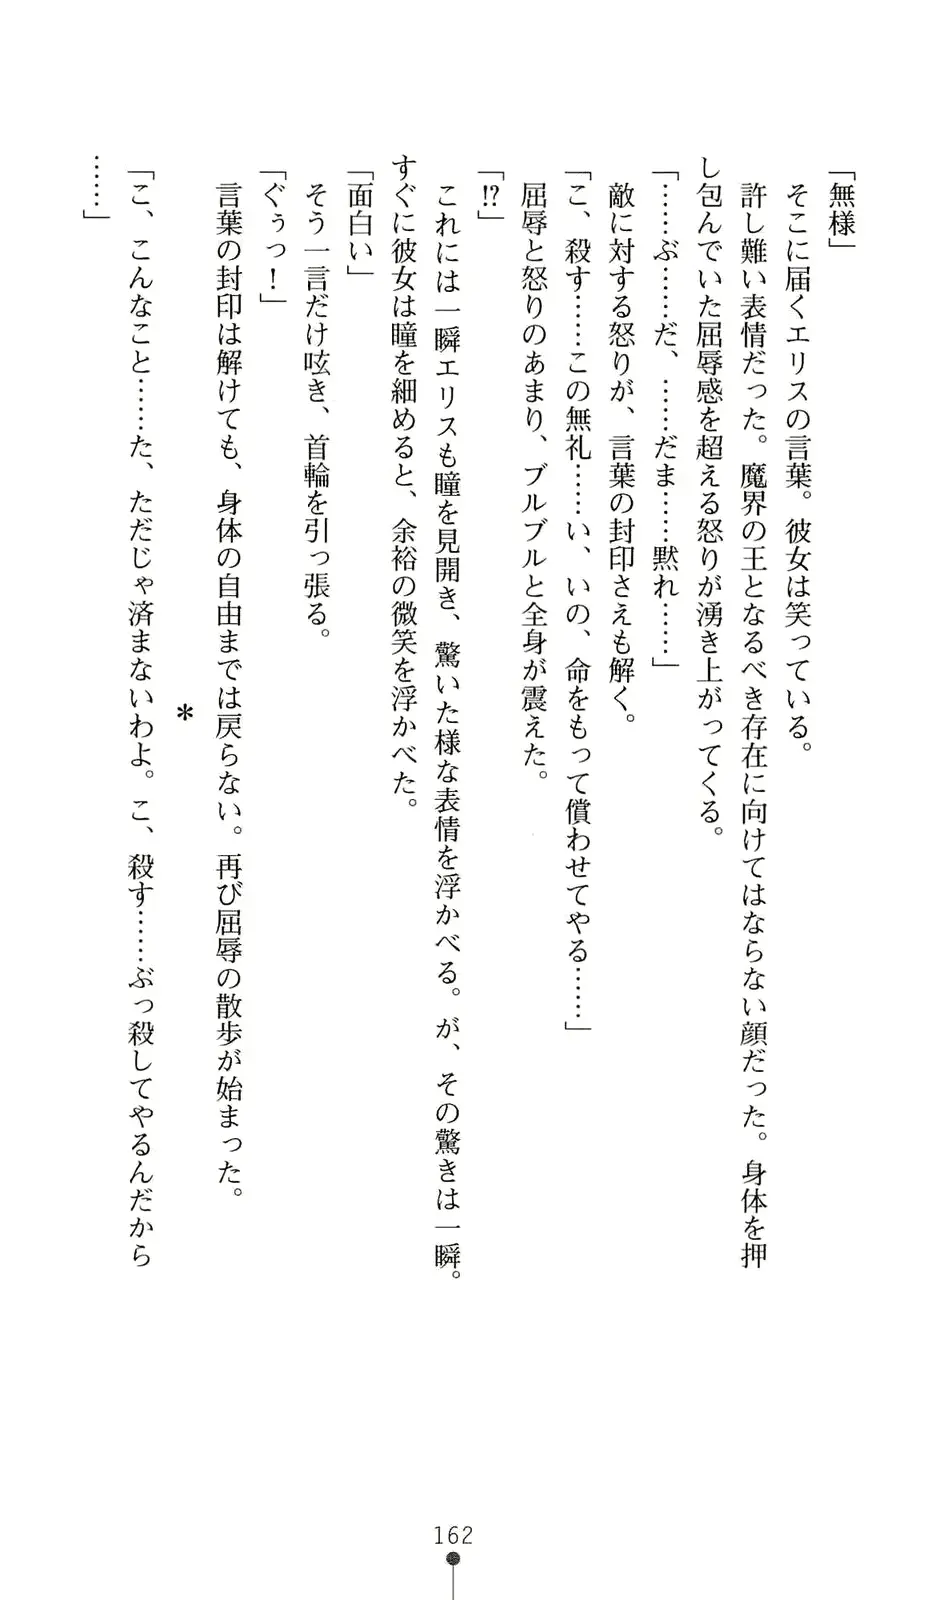 「無様」
そこに届くエリスの言葉。彼女は笑っている。
許し難い表情だった。魔界の王となるべき存在に向けてはならない顔だった。身体を押
し包んでいた屈辱感を超える怒りが湧き上がってくる。
「……ぶ……だ、……だま……黙れ……」
敵に対する怒りが、言葉の封印さえも解く。
「こ、殺す……この無礼……い、いの、命をもって償わせてやる……」
屈辱と怒りのあまり、ブルブルと全身が震えた。
「!?」
これには一瞬エリスも瞳を見開き、驚いた様な表情を浮かべる。が、その驚きは一瞬。
すぐに彼女は瞳を細めると、余裕の微笑を浮かべた。
「面白い」
そう一言だけ呟き、首輪を引っ張る。
「ぐぅっ！」
言葉の封印は解けても、身体の自由までは戻らない。再び屈辱の散歩が始まった。
＊
「こ、こんなこと……た、ただじゃ済まないわよ。こ、殺す……ぶっ殺してやるんだから
……」
162